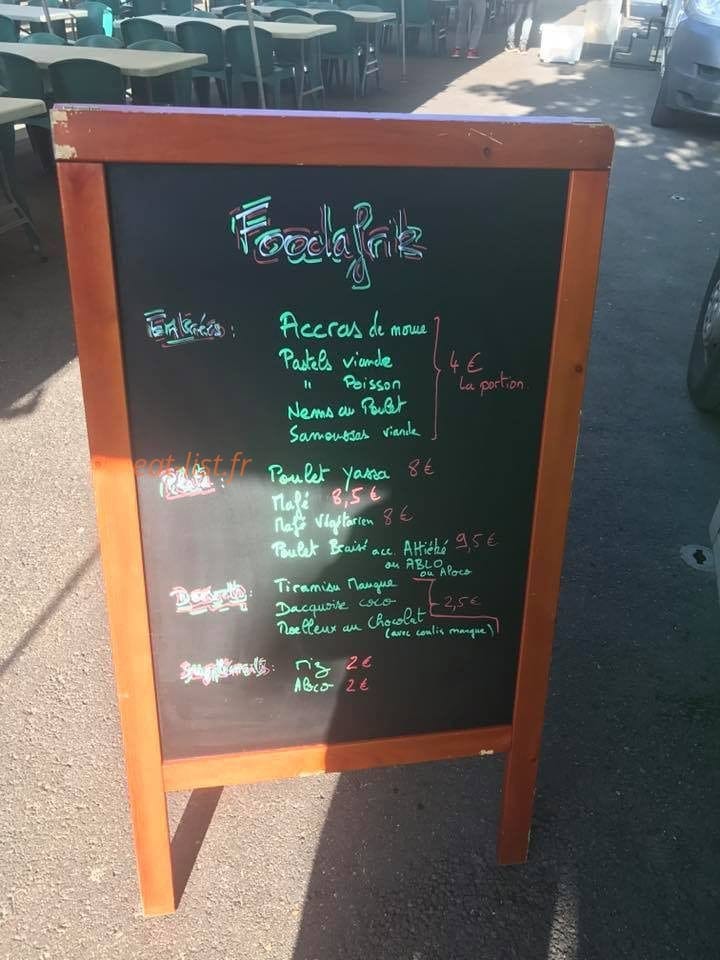 Foodafrik
Entrées : Accras de morue
Pastels viande
" Poisson
Nems au Poulet
Samoussas viande
4 €
La portion
eat-list.fr
Plats : Poulet yassa 8 €
Mafé 8,5 €
Mafé Végétarien 8 €
Poulet Braisé acc. Attiéké 9,5 €
ou ABLO
ou Aloco
Desserts : Tiramisu Mangue
Dacquoise coco
Moelleux au chocolat
(avec coulis mangue)
2,5 €
Suppléments : riz 2 €
Aloco 2 €